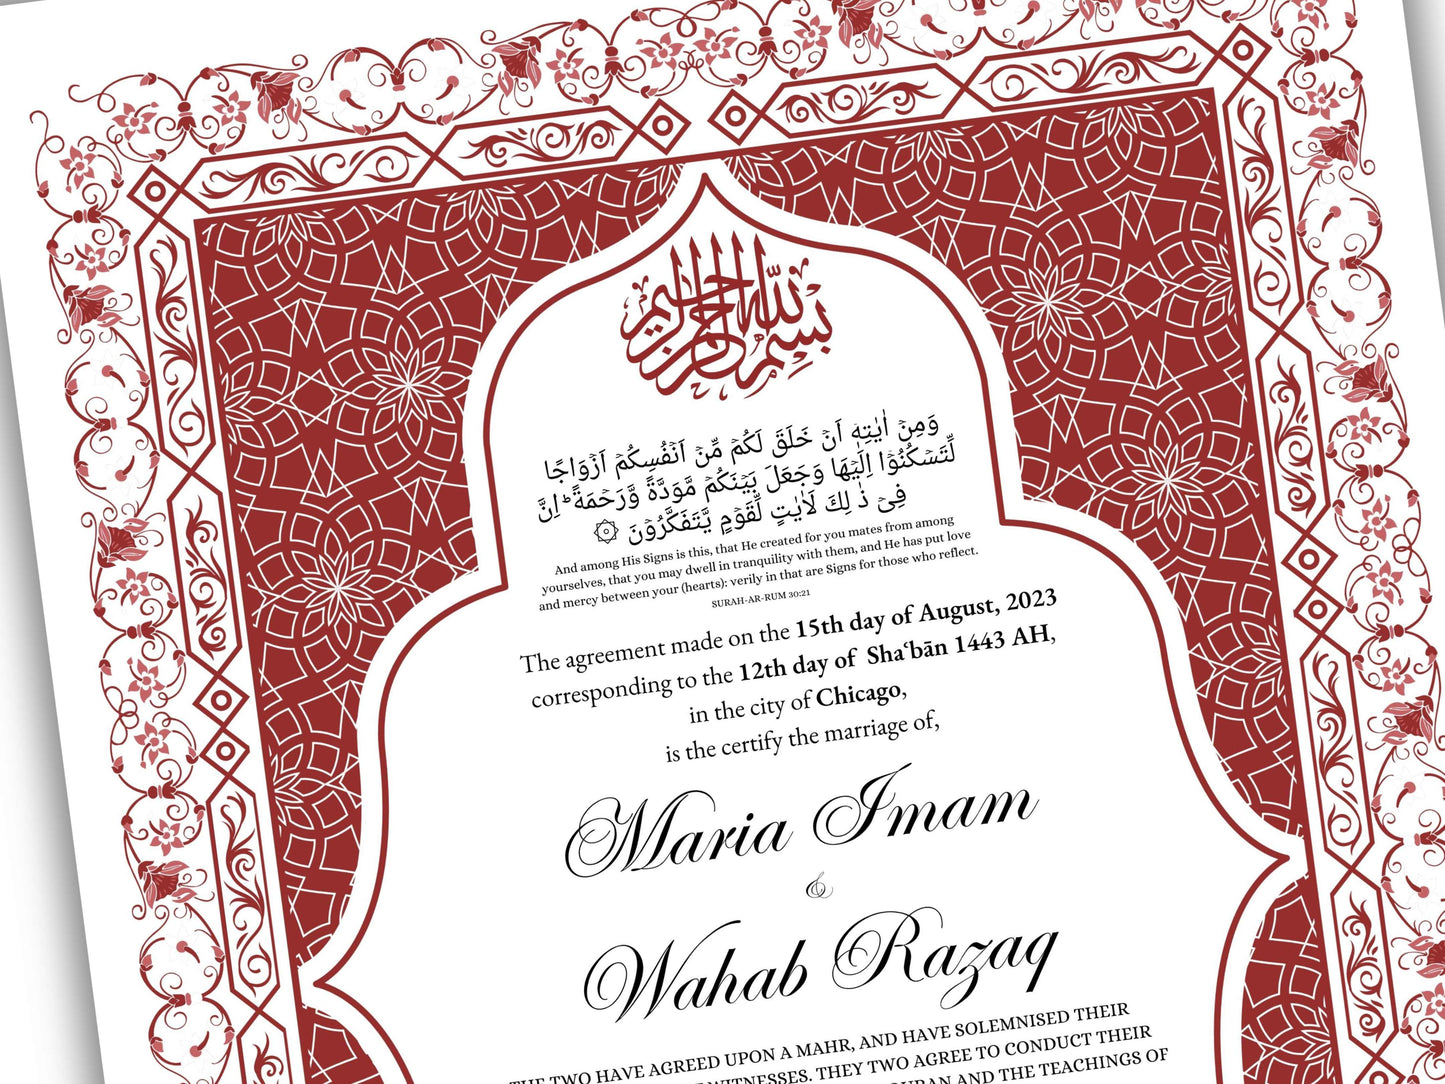 بسم الله الرحمن الرحيم
وَمِنْ اٰيٰتِهٖۤ اَنْ خَلَقَ لَكُمْ مِّنْ اَنْفُسِكُمْ اَزْوَاجًا
لِّتَسْكُنُوْۤا اِلَيْهَا وَجَعَلَ بَيْنَكُمْ مَّوَدَّةً وَّرَحْمَةً ؕ اِنَّ
فِىْ ذٰ لِكَ لَاٰيٰتٍ لِّقَوْمٍ يَّتَفَكَّرُوْنَ ۞
And among His Signs is this, that He created for you mates from among
yourselves, that you may dwell in tranquility with them, and He has put love
and mercy between your (hearts): verily in that are Signs for those who reflect.
SURAH-AR-RUM 30:21
The agreement made on the 15th day of August, 2023
corresponding to the 12th day of Shaʿbān 1443 AH,
in the city of Chicago,
is the certify the marriage of,
Maria Imam
&
Wahab Razaq
THE TWO HAVE AGREED UPON A MAHR, AND HAVE SOLEMNISED THEIR
WITNESSES. THEY TWO AGREE TO CONDUCT THEIR
AND THE TEACHINGS OF